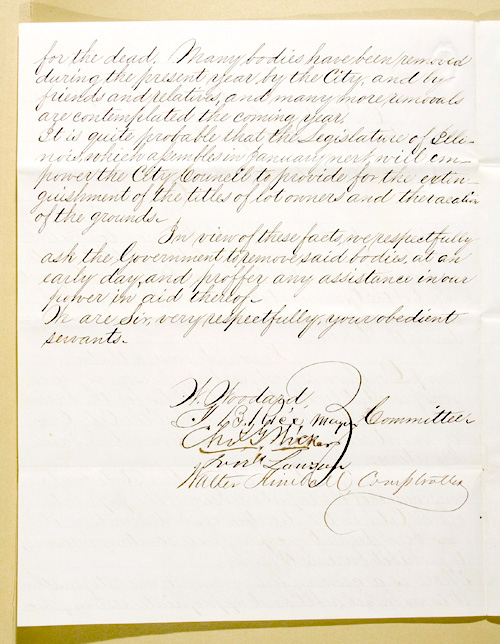 for the dead. Many bodies have been removed
during the present year, by the City, and by
friends and relatives, and many more removals
are contemplated the coming year.
It is quite probable that the Legislature of Illi-
nois, which assembles in January next, will em-
power the City Council to provide for the extin-
guishment of the titles of lot owners and the
of the grounds.
In view of these facts, we respectfully
ask the Government to remove said bodies, at an
early day, and proffer any assistance in our
power in aid thereof.
We are Sir, very respectfully, your obedient
servants.
W. Woodard
J. B. Rice Mayor Committee
Walter Kimball Comptroller